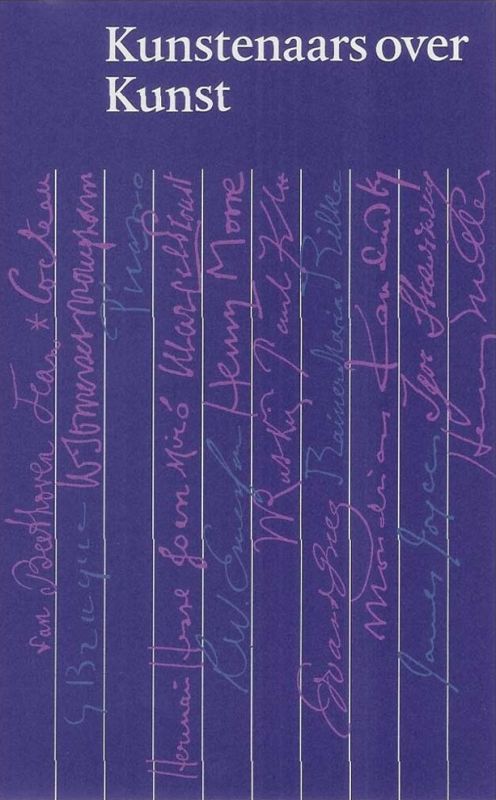 Kunstenaars over
Kunst
van Beethoven Jean * Cocteau
G Braque W. Somerset Maugham
Picasso
Hermann Hesse Joan Miró Marcel Proust
R.W. Emerson Henry Moore
Ruskin Paul Klee
Edvard Grieg Rainer Maria Rilke
Mondriaan Kandinsky
James Joyce Igor Strawinsky
Henry Miller